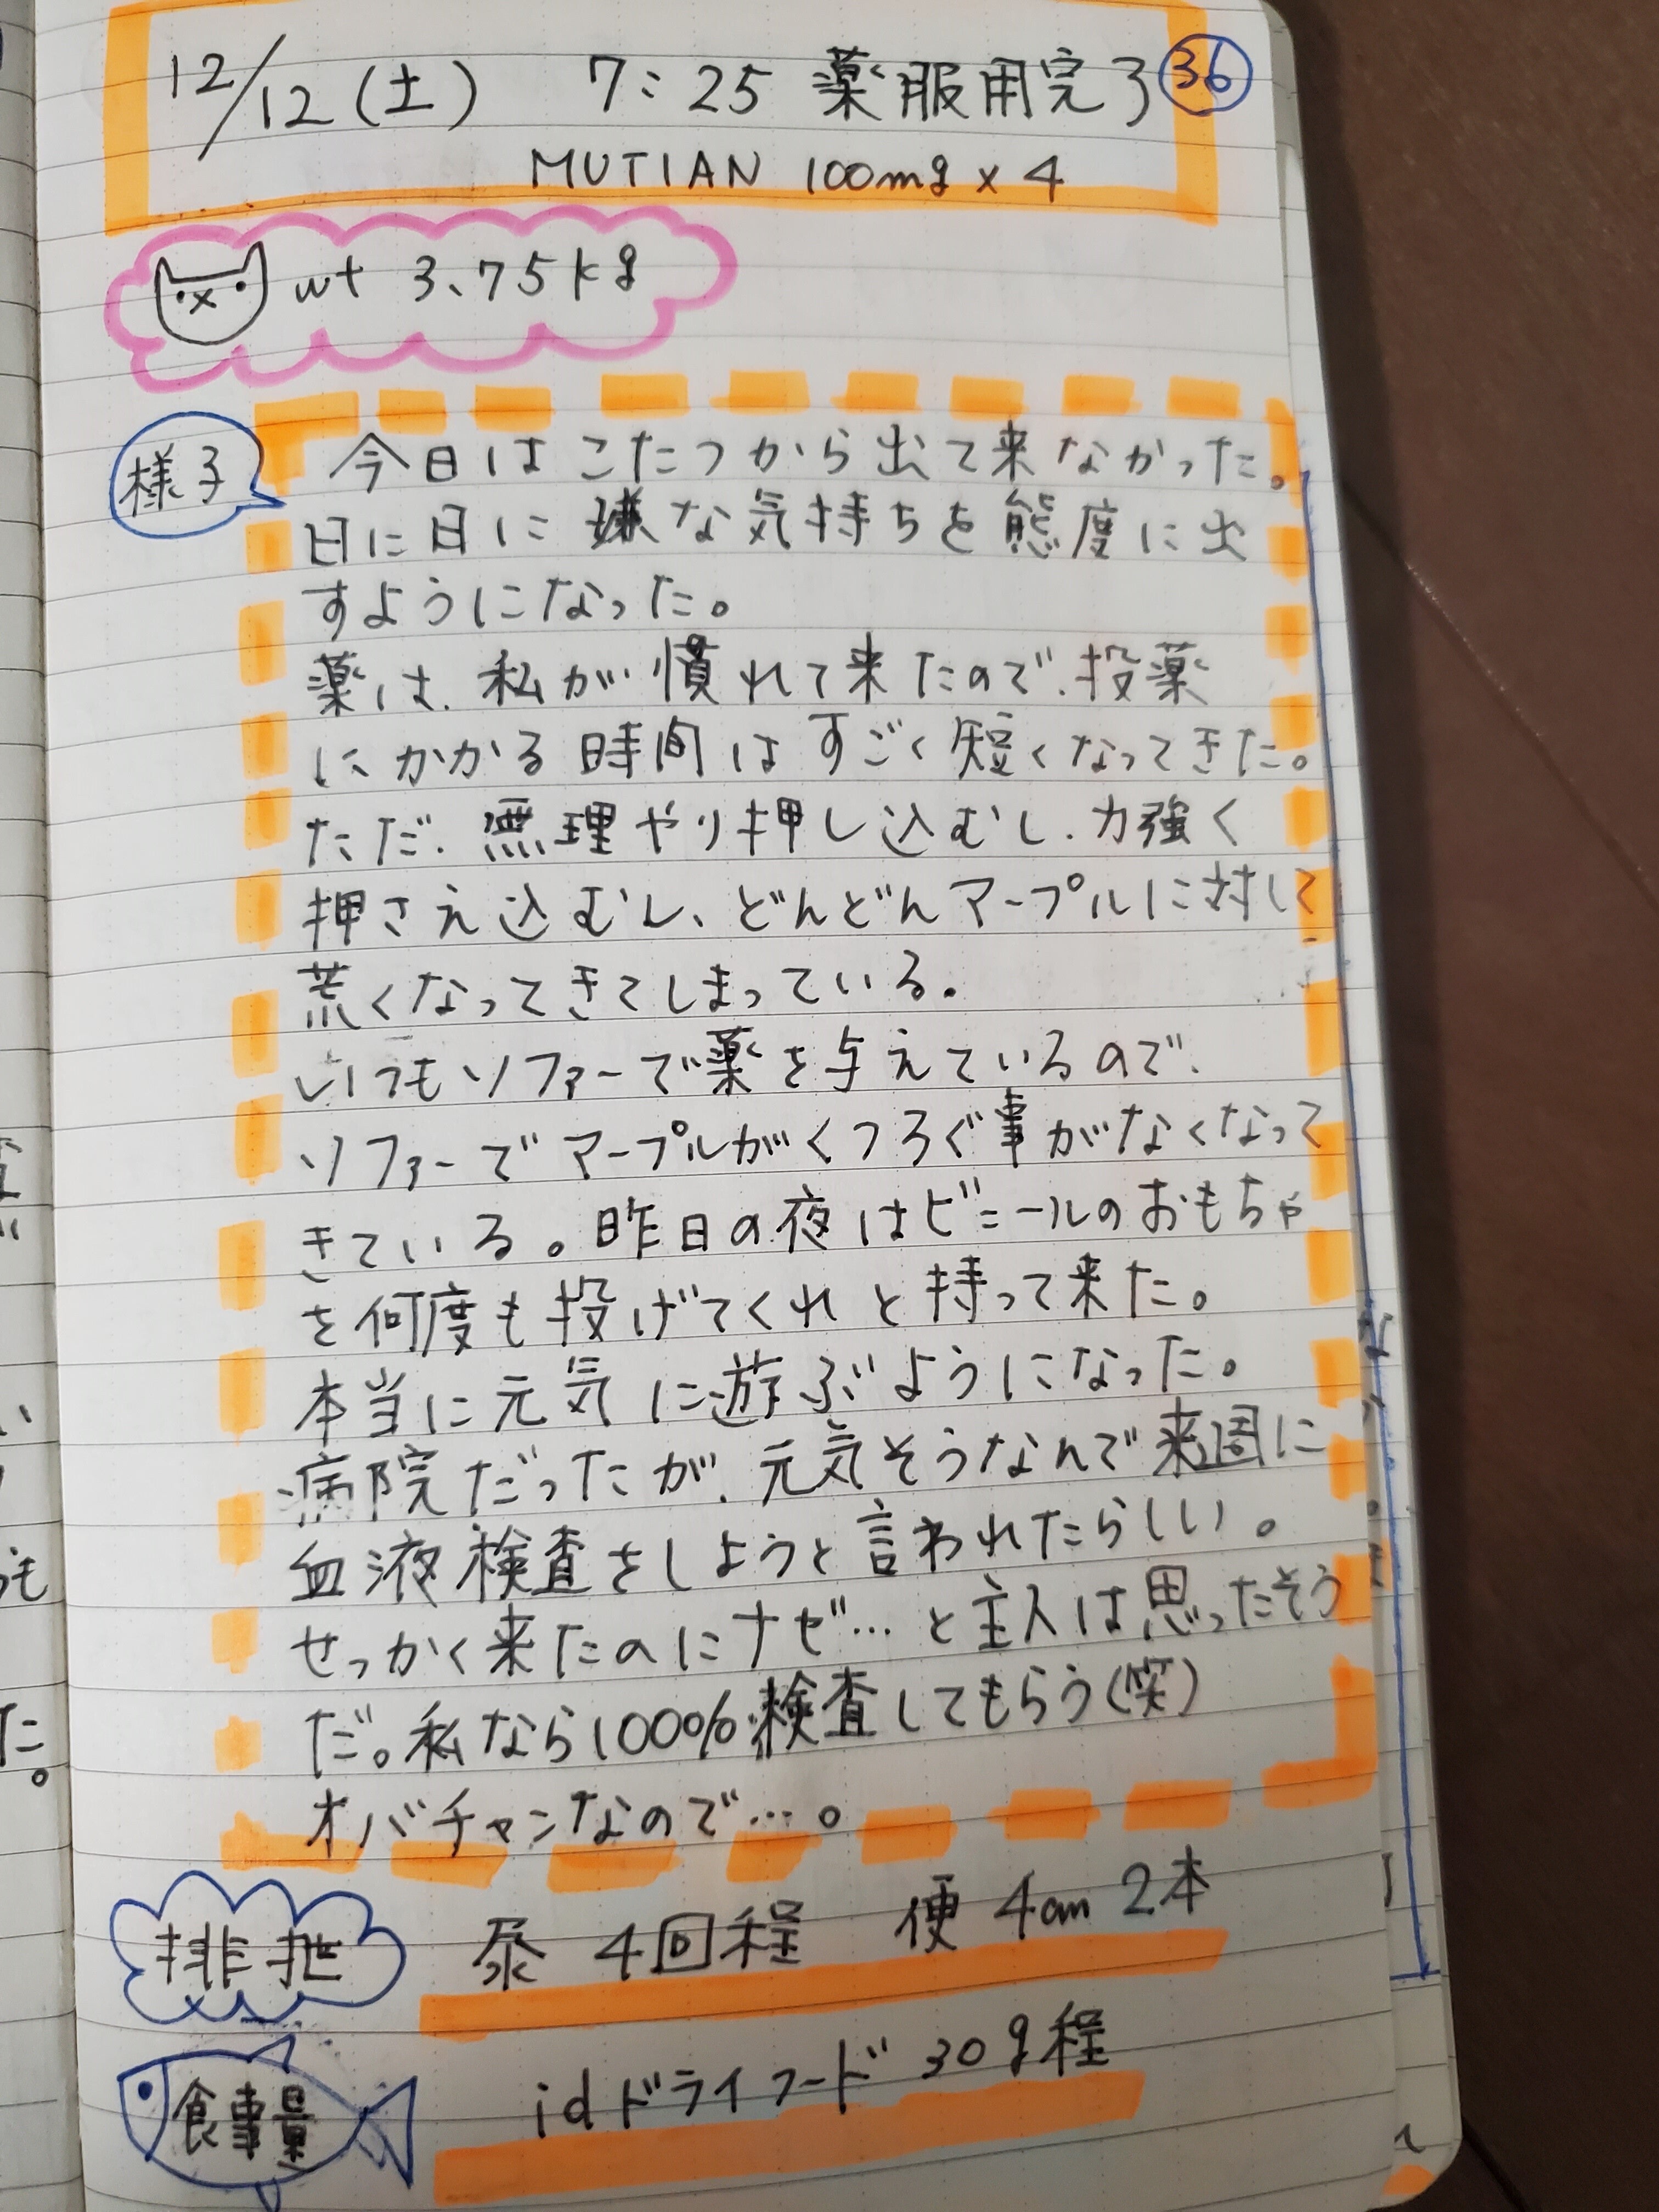 12/12(土) 7:25 薬服用完了 ㊱
MUTIAN 100mg×4
wt 3.75kg
様子
今日はこたつから出て来なかった。
日に日に嫌な気持ちを態度に出
すようになった。
薬は、私が慣れて来たので、投薬
にかかる時間はすごく短くなってきた。
ただ、無理やり押し込むし、力強く
押さえ込むし、どんどんマープルに対して
荒くなってきてしまっている。
いつもソファーで薬を与えているので、
ソファーでマープルがくつろぐ事がなくなって
きている。昨日の夜はビニールのおもちゃ
を何度も投げてくれと持って来た。
本当に元気に遊ぶようになった。
病院だったが、元気そうなんで来週に
血液検査をしようと言われたらしい。
せっかく来たのにナゼ…と主人は思ったそう
だ。私なら100%検査してもらう(笑)
オバチャンなので…。
排泄 尿 4回程 便 4cm 2本
食事量 idドライフード 30g程